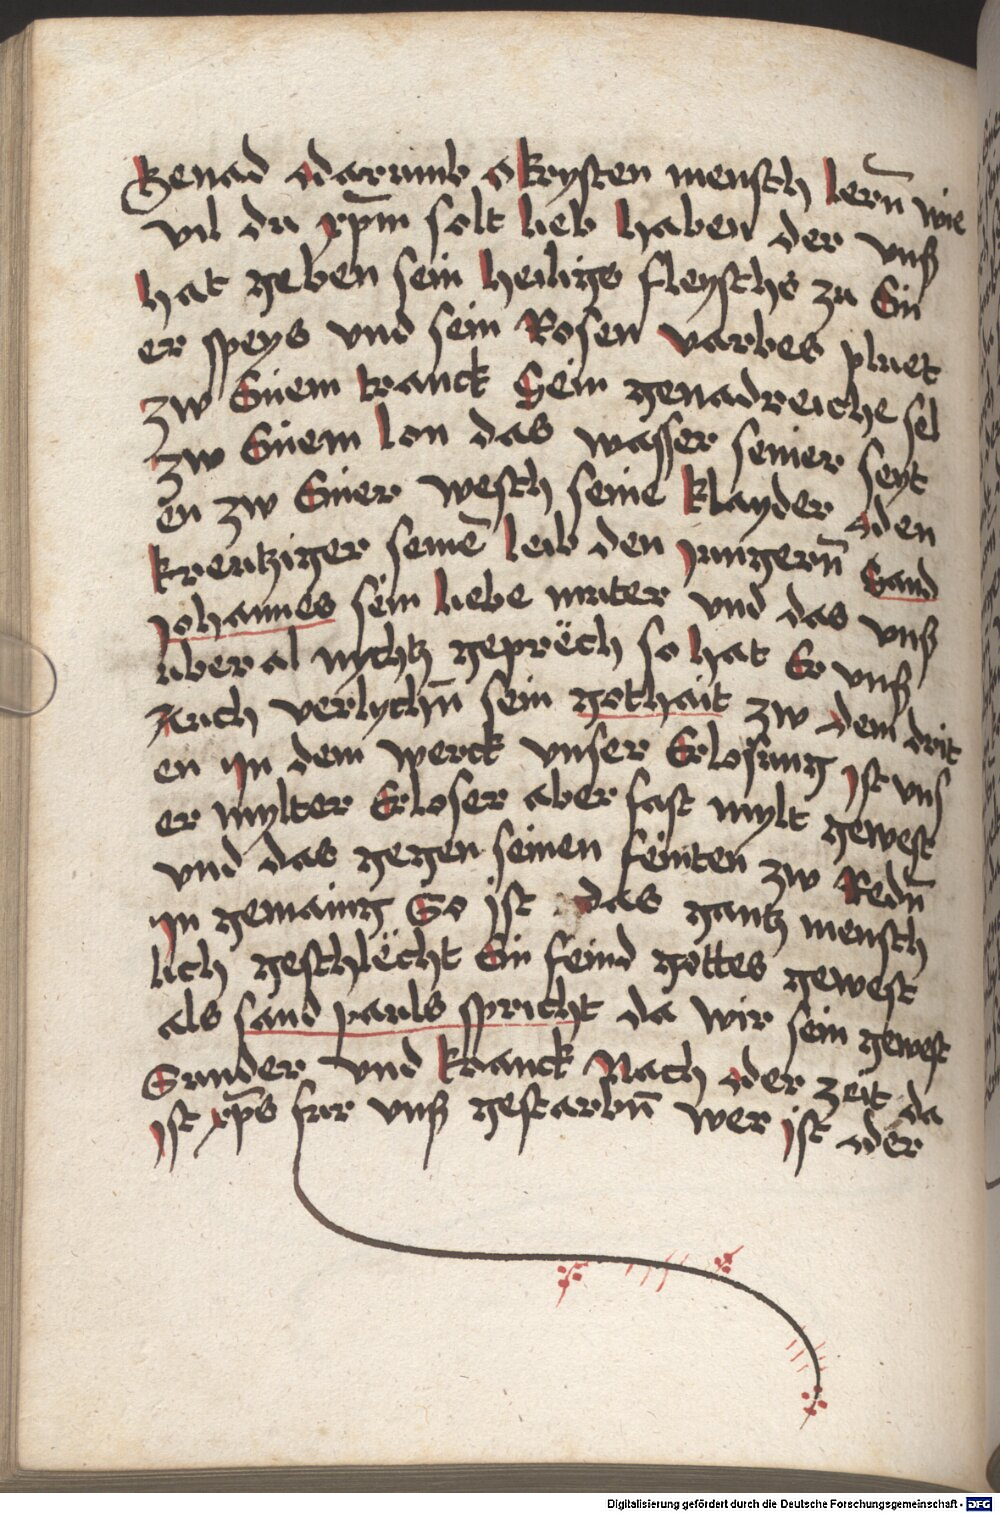 genad Darumb O krysten mensch lern̄ wie
vil du xp̄m solt lieb haben der vnß
hat geben sein heiligs fleyschs zu Ein
er speys vnd sein Rosen varbes pluet
zw Einem tranck Sein genadreiche sel
zw Einem lon das wasser seiner seyt
en zw Einer wesch seine klayder den
kreutziger seinē leib den jungern̄ Sand
johannes sein liebe muter vnd das vnß
uber al nychtz geprëch so hat Er vnß
Auch verlychn̄ sein gothait zw dem drit
en yn dem werck vnser Erlosung jst vns
er mylter Erloser aber fast mylt gewest
vnd das gegen seinen feinten zw Redn̄
yn gemaing So jst das gantz mensch
lich geschlëcht Ein feind gottes gewest
als sand pauls spricht da wir sein gewest
Sunder vnd kranck Nach der zeit da
jst xp̄s fur vnß gestarbn̄ wer jst der
Digitalisierung gefördert durch die Deutsche Forschungsgemeinschaft - DFG